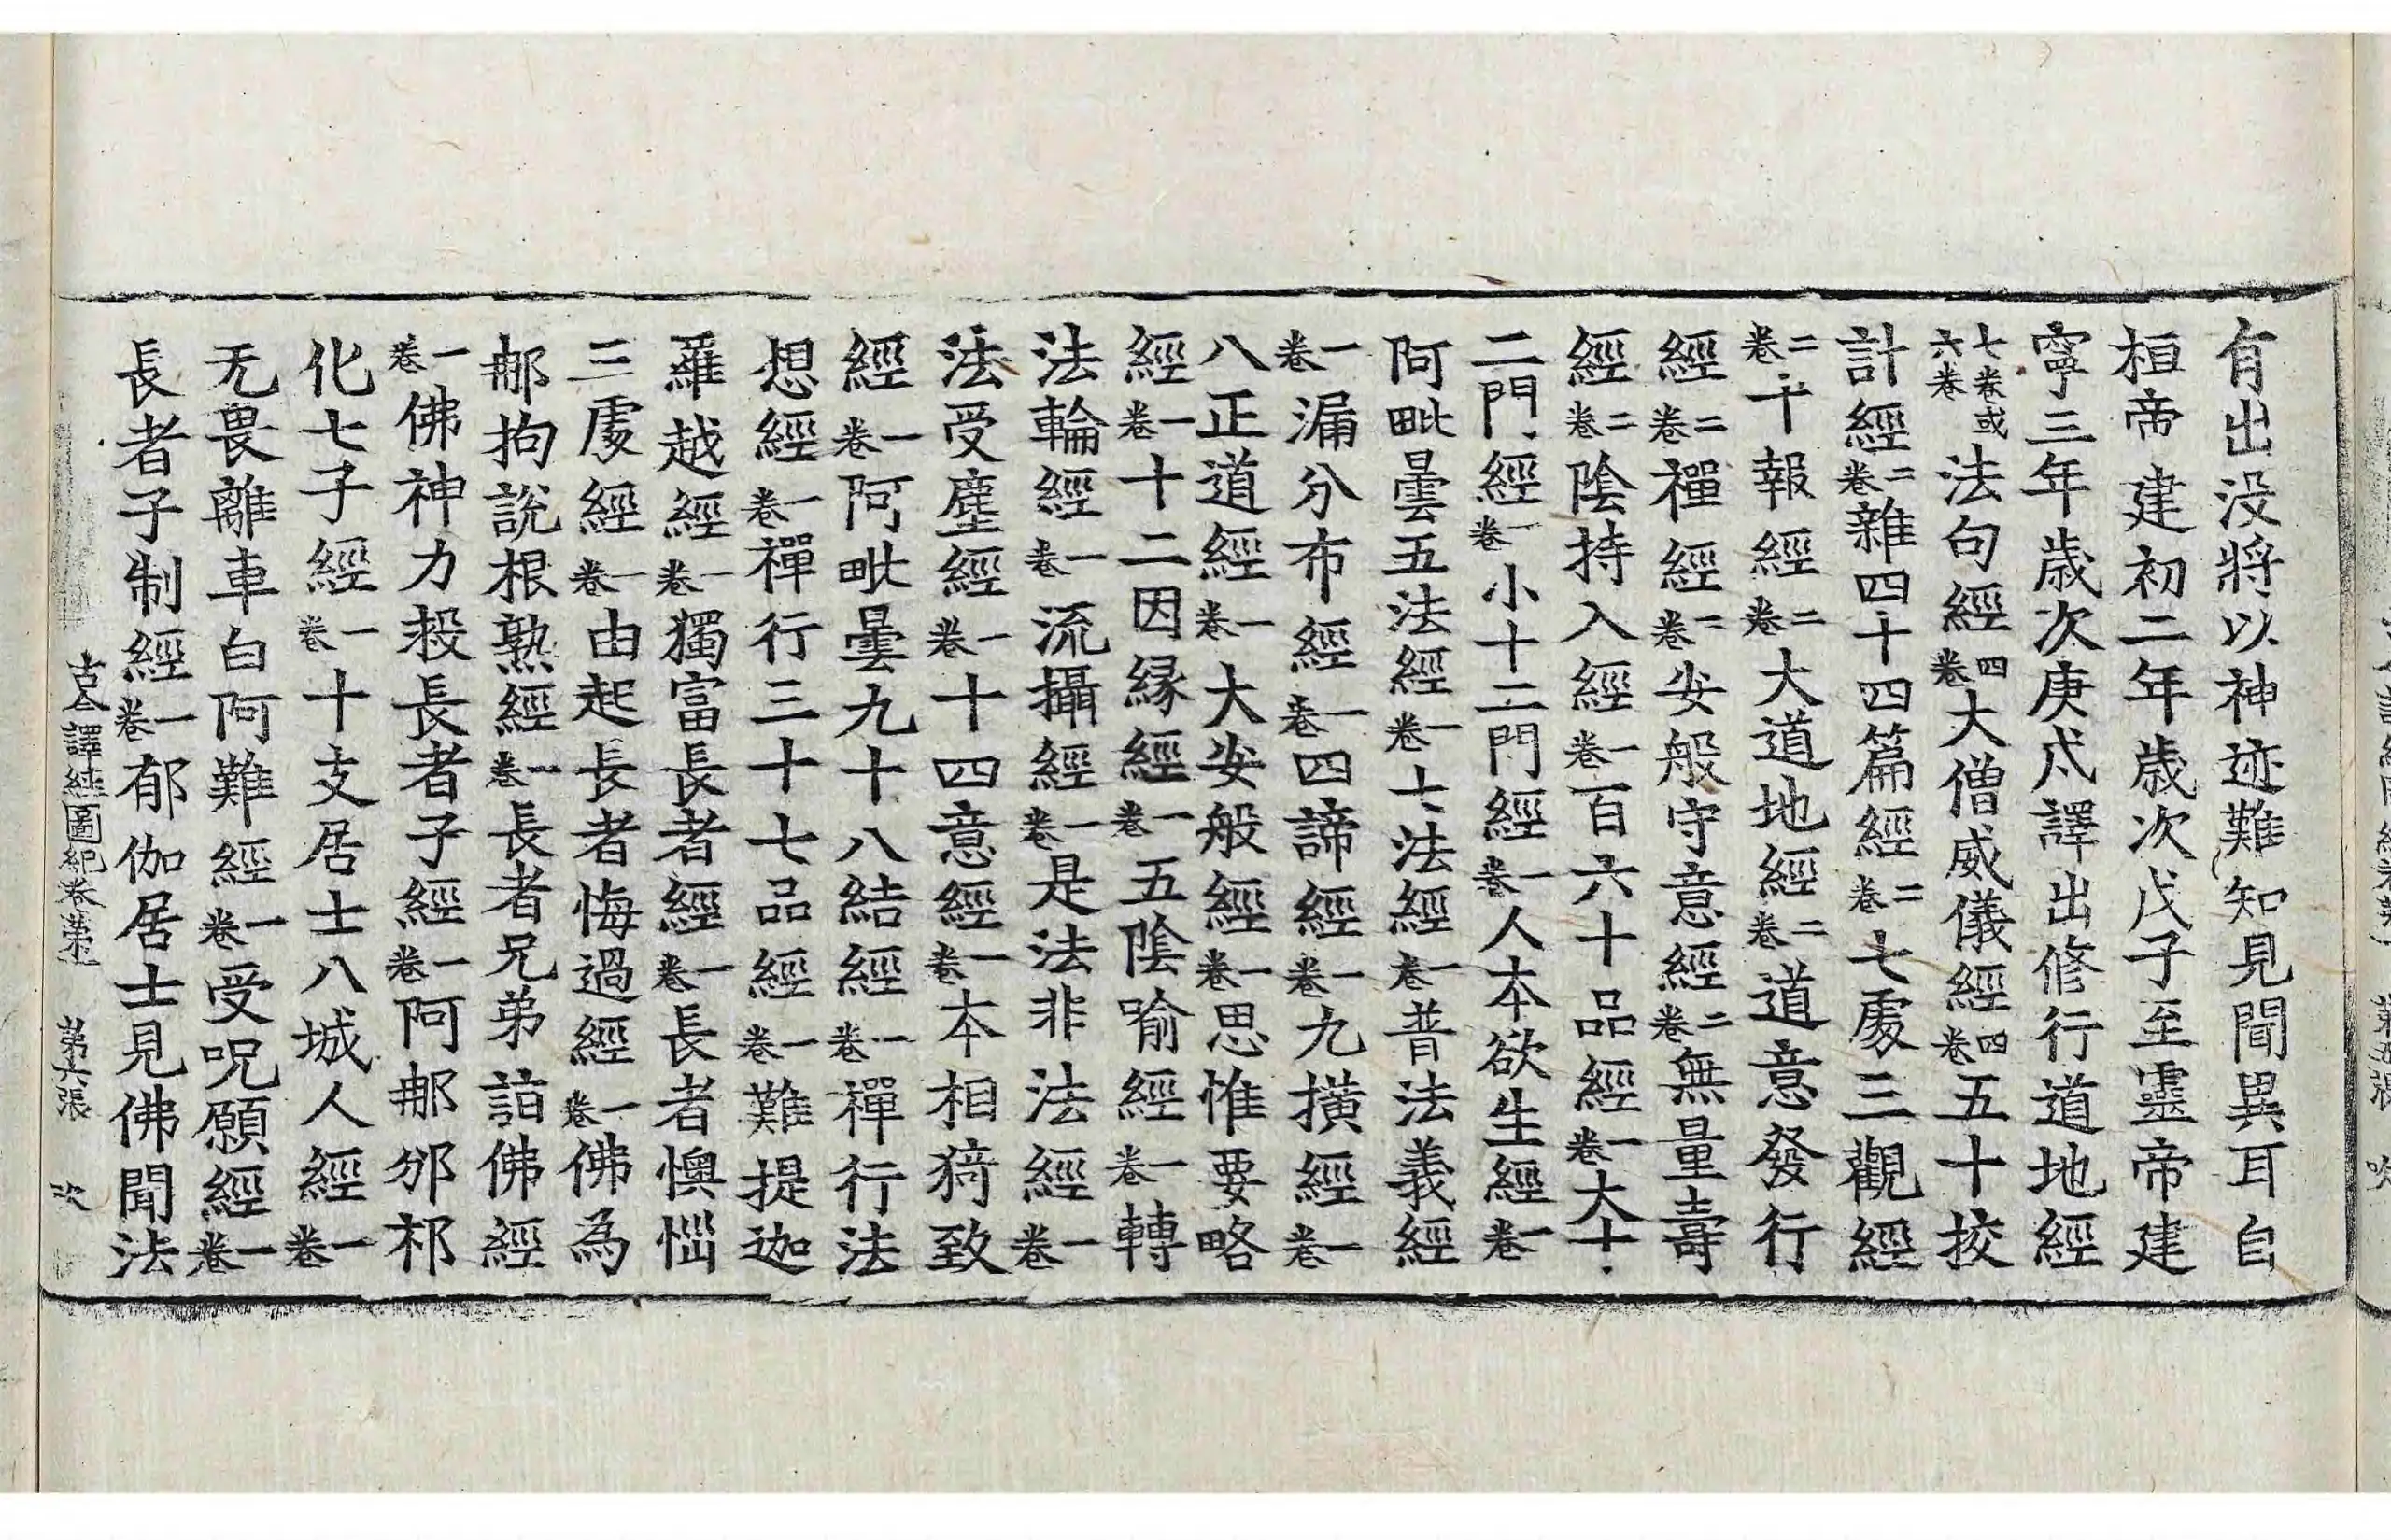 有出没將以神迹難知見聞異耳自
桓帝建初二年歲次戊子至靈帝建
寧三年歲次庚戌譯出修行道地經
七卷或六卷法句經四卷大僧威儀經四卷五十挍
計經二卷雜四十四篇經二卷七處三觀經
二卷十報經二卷大道地經二卷道意發行
經二卷禪經二卷安般守意經二卷無量壽
經二卷陰持入經一卷百六十品經一卷大十
二門經一卷小十二門經一卷人本欲生經一卷
阿毗曇五法經一卷七法經一卷普法義經
一卷漏分布經一卷四諦經一卷九橫經一卷
八正道經一卷大安般經一卷思惟要略
經一卷十二因緣經一卷五陰喻經一卷轉
法輪經一卷流攝經一卷是法非法經一卷
法受塵經一卷十四意經一卷本相猗致
經一卷阿毗曇九十八結經一卷禪行法
想經一卷禪行三十七品經一卷難提迦
羅越經一卷獨富長者經一卷長者懊惱
三處經一卷由起長者悔過經一卷佛為
那拘說根熟經一卷長者兄弟詣佛經
一卷佛神力救長者子經一卷阿那邠祁
化七子經一卷十支居士八城人經一卷
无畏離車白阿難經一卷受呪願經一卷
長者子制經一卷郁伽居士見佛聞法
古今譯經圖紀卷第一 第六張 次